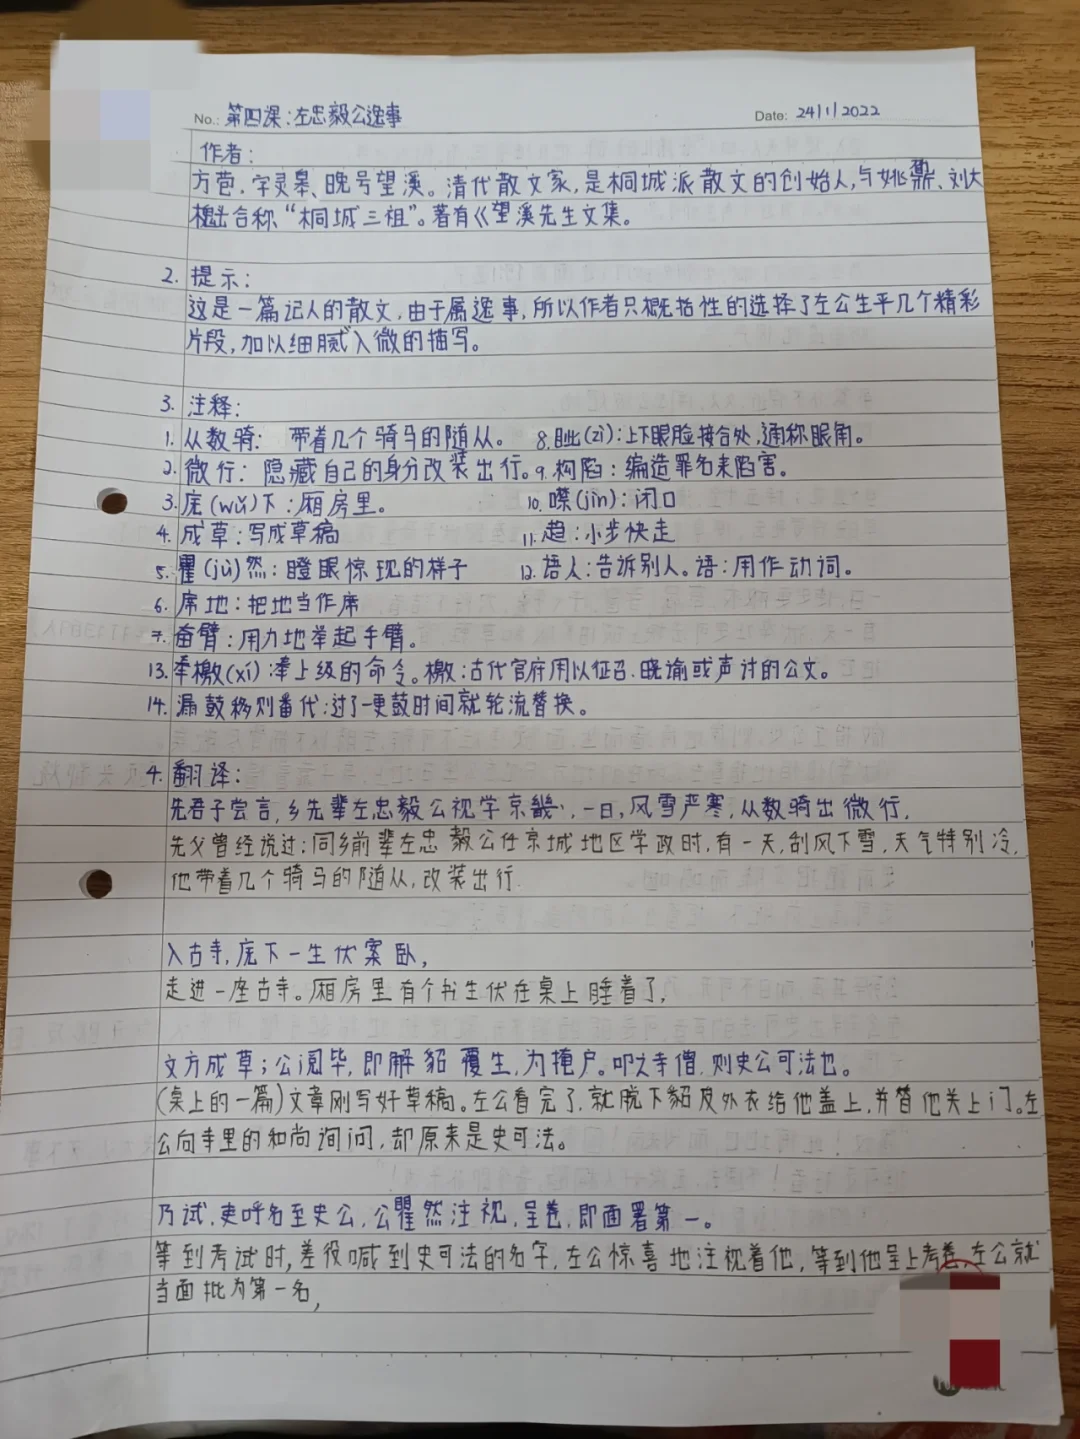 No.: 第四课：左忠毅公逸事
Date: 24/1/2022
作者：
方苞，字灵皋、晚号望溪。清代散文家，是桐城派散文的创始人，与姚鼐、刘大
櫆合称“桐城三祖”。著有《望溪先生文集。
2. 提示：
这是一篇记人的散文，由于属逸事，所以作者只概括性的选择了左公生平几个精彩
片段，加以细腻入微的描写。
3. 注释：
1. 从数骑： 带着几个骑马的随从。 8. 眦(zì)：上下眼脸接合处，通称眼角。
2. 微行：隐藏自己的身分改装出行。 9. 构陷：编造罪名来陷害。
3. 庑(wǔ)下：厢房里。 10. 噤(jìn)：闭口
4. 成草：写成草稿 11. 趋：小步快走
5. 瞿(jù)然：瞪眼惊现的样子 12. 语人：告诉别人。语：用作动词。
6. 席地：把地当作席
7. 奋臂：用力地举起手臂。
13. 奉檄(xí)：奉上级的命令。檄：古代官府用以征召、晓谕或声讨的公文。
14. 漏鼓移则番代：过了一更鼓时间就轮流替换。
4. 翻译：
先君子尝言，乡先辈左忠毅公视学京畿，一日，风雪严寒，从数骑出微行，
先父曾经说过：同乡前辈左忠毅公任京城地区学政时，有一天，刮风下雪，天气特别冷，
他带着几个骑马的随从，改装出行.
入古寺，庑下一生伏案卧，
走进一座古寺。厢房里有个书生伏在桌上睡着了，
文方成草；公阅毕，即解貂覆生，为掩户。叩之寺僧，则史公可法也。
（桌上的一篇）文章刚写好草稿。左公看完了，就脱下貂皮外衣给他盖上，并替他关上门。左
公向寺里的和尚询问，却原来是史可法。
乃试，吏呼名至史公，公瞿然注视，呈卷，即面署第一。
等到考试时，差役喊到史可法的名字，左公惊喜地注视着他，等到他呈上考卷，左公就
当面批为第一名，